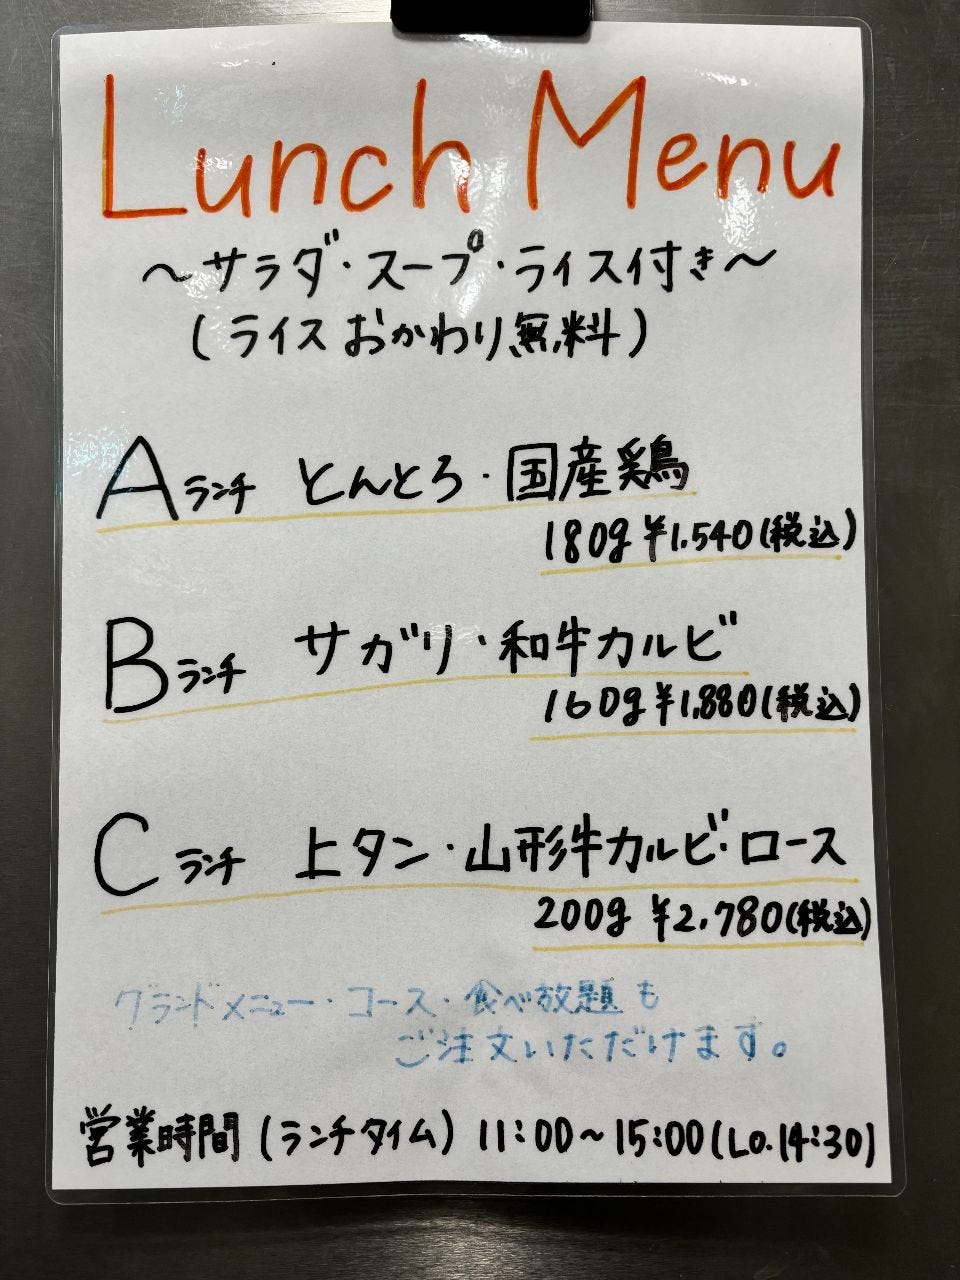 Lunch Menu
～サラダ・スープ・ライス付き～
(ライスおかわり無料)
Aランチ とんとろ・国産鶏
180g ¥1.540(税込)
Bランチ サガリ・和牛カルビ
160g ¥1,880(税込)
Cランチ 上タン・山形牛カルビ・ロース
200g ¥2.780(税込)
グランドメニュー・コース・食べ放題も
ご注文いただけます。
営業時間(ランチタイム) 11:00～15:00(Lo.14:30)